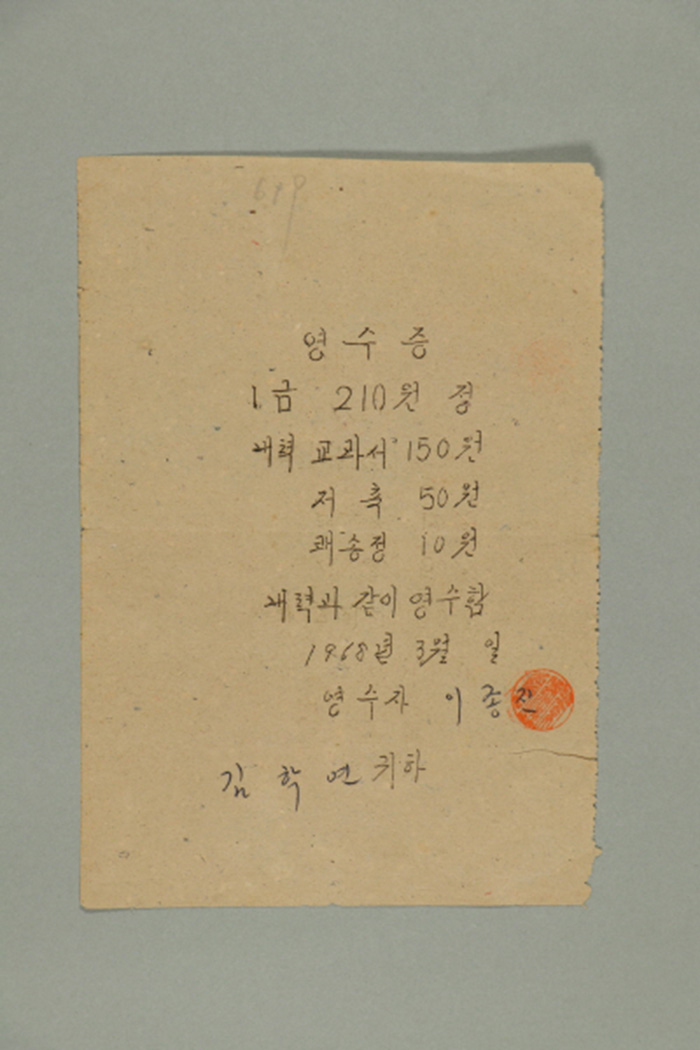 619
영 수 증
1. 금 210원 정
내력 교과서 150원
저 축 50원
쾌송정 10원
내력과 같이 영수함
1968년 3월 일
영수자 이 종 진
김 학 연 귀하